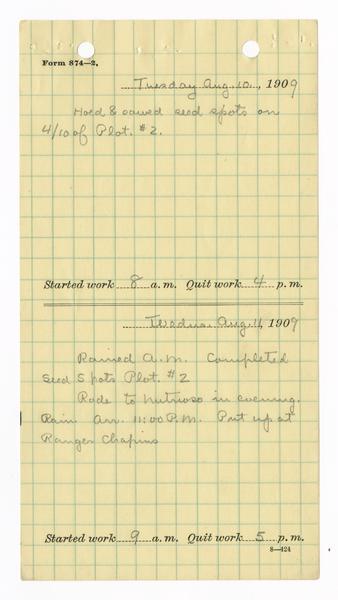 Form 874—2.
Tuesday Aug. 10, 1909
Hoed & sowed seed spots on
4/10 of Plot. #2.
Started work 8 a.m. Quit work 4 p.m.
Aug. 11, 1909
Rained A.M. Completed
Seed Spots Plot. #2
Rode to Nutrioso in evening.
Rain Arr. 11:00 P.M. Put up at
Ranger Chapins
Started work 9 a.m. Quit work 5 p.m.
8—424